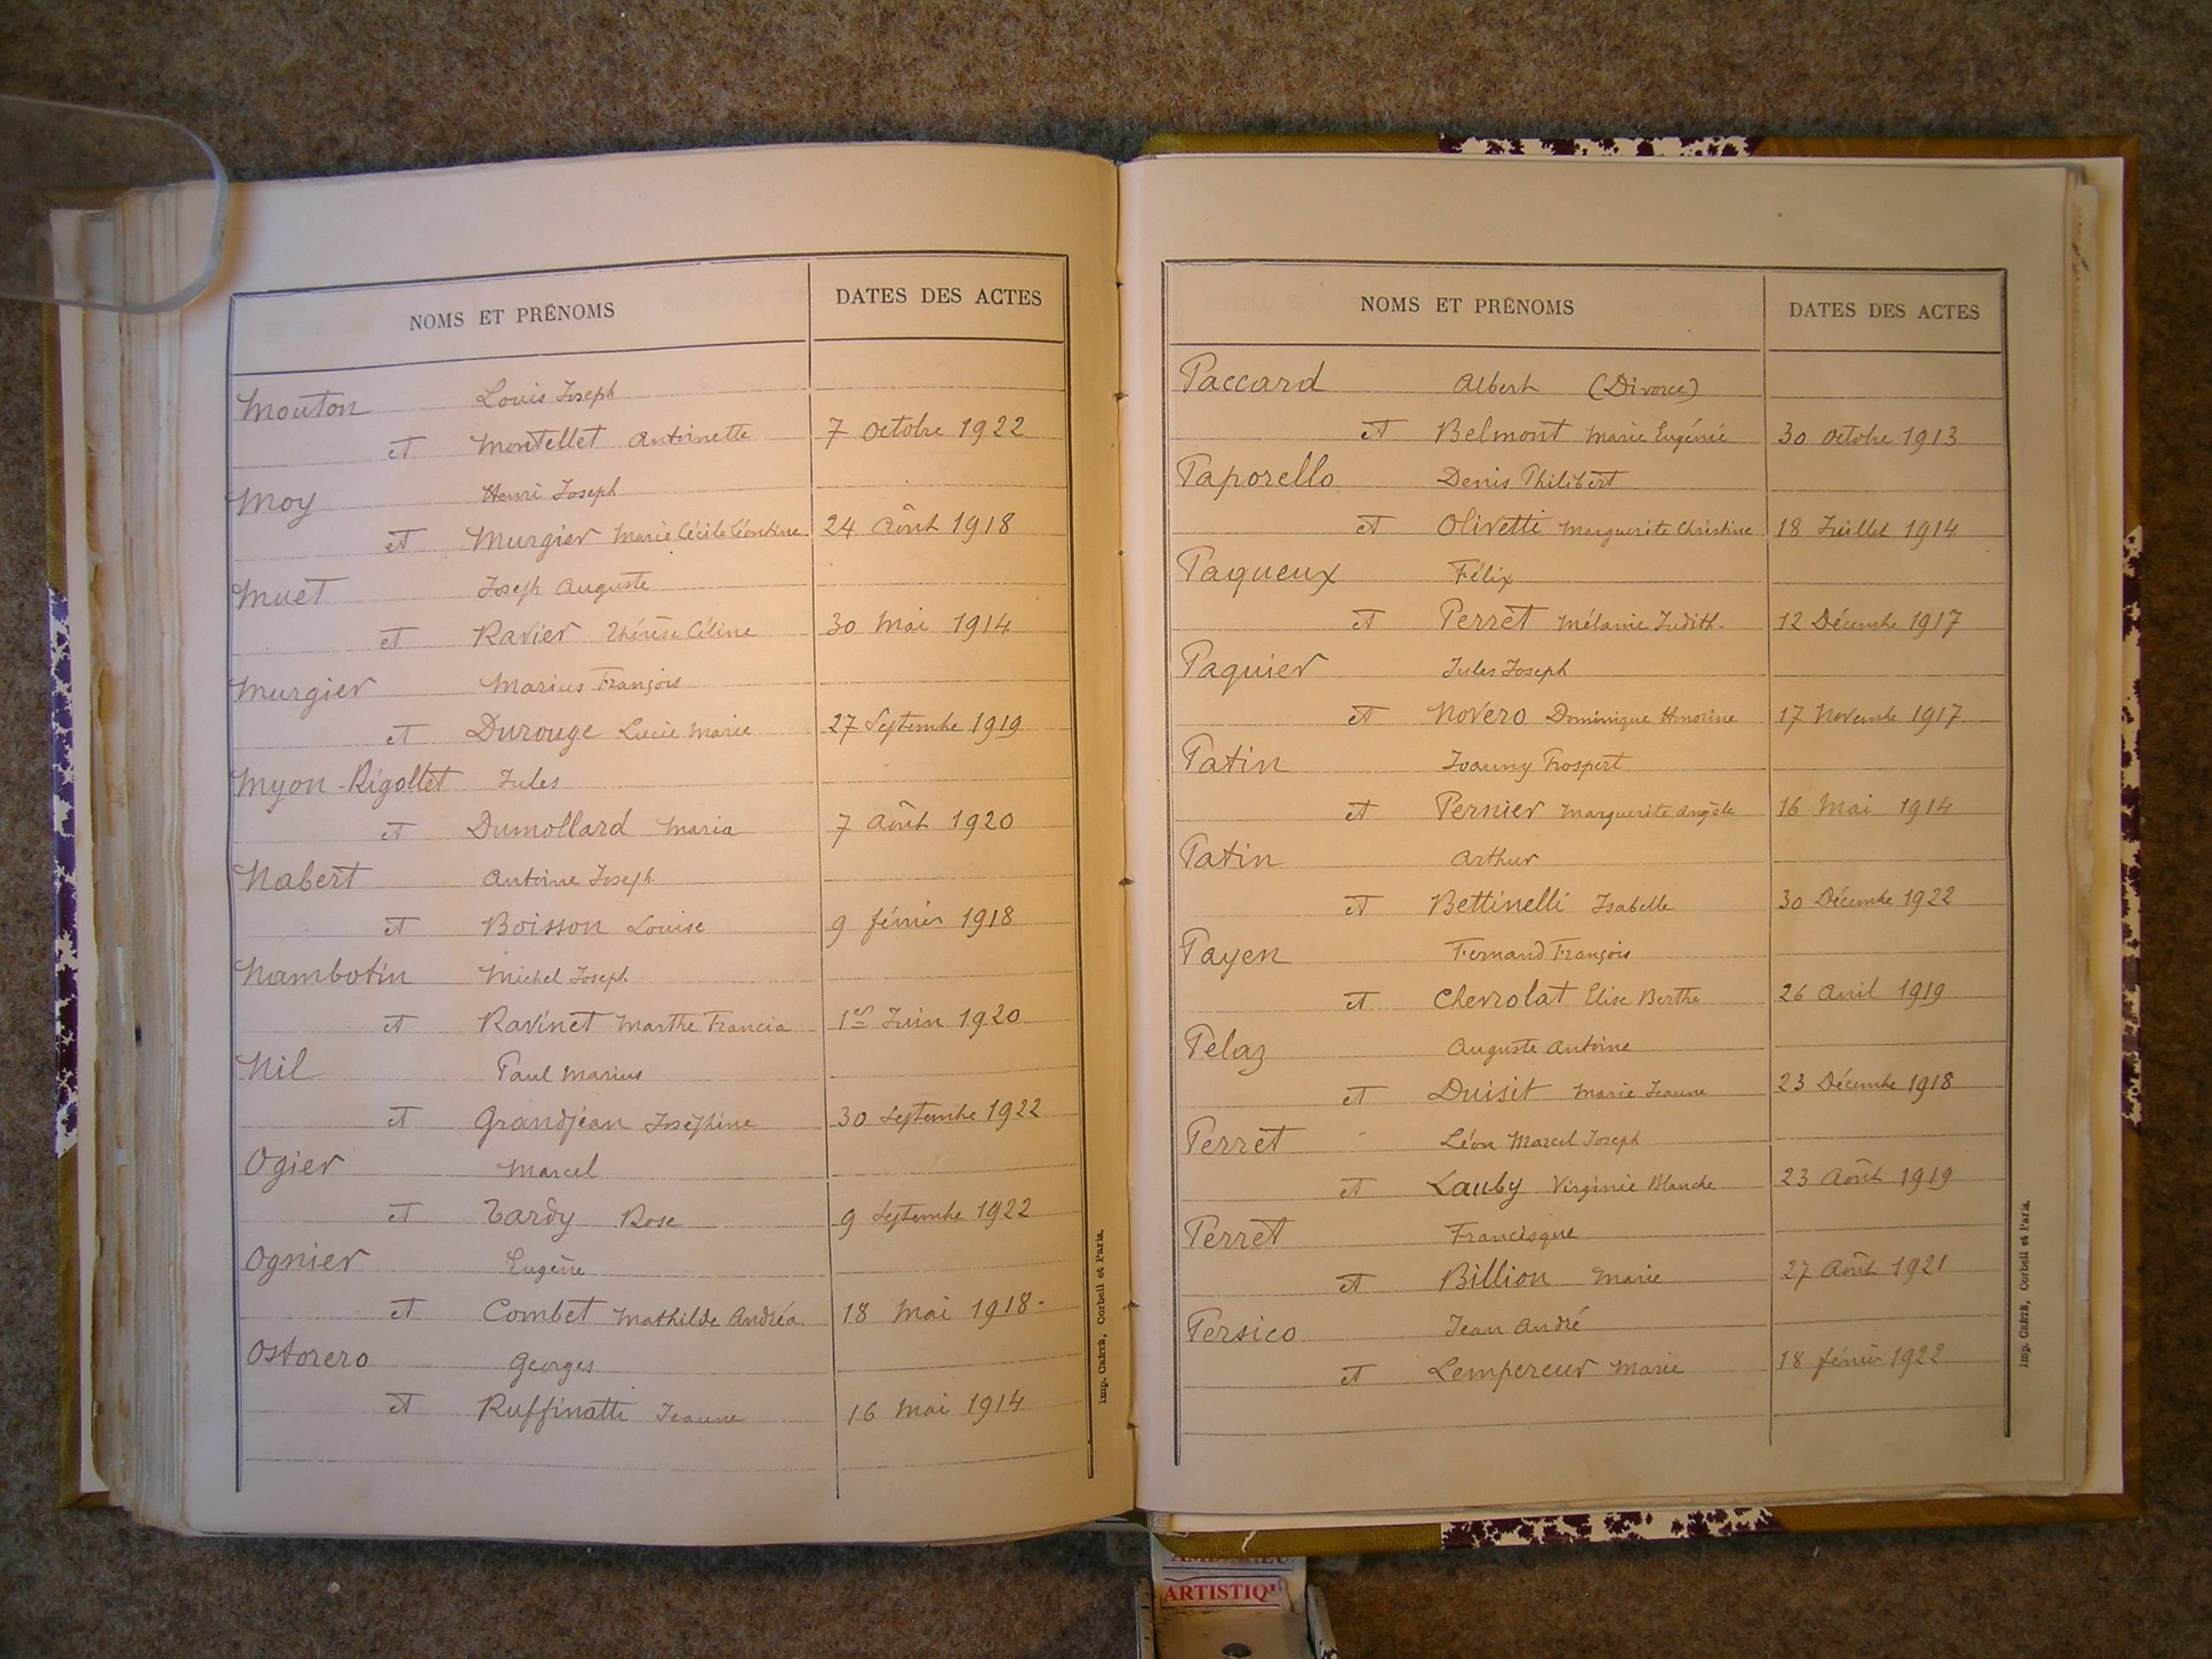 NOMS ET PRÉNOMS DATES DES ACTES
Mouton Louis Joseph
et Montellet Antoinette 7 Octobre 1922
Moy Henri Joseph
et Murgier Marie Cécile Léontine 24 Août 1918
Muet Joseph Auguste
et Ravier Thérèse Céline 30 Mai 1914
Murgier Marius François
et Durouge Lucie Marie 27 Septembre 1919
Myon-Rigollet Jules
et Dumollard Maria 7 Août 1920
Nabert Antoine Joseph
et Boisson Louise 9 février 1918
Nambotin Michel Joseph
et Ravinet Marthe Francia 1er Juin 1920
Nil Paul Marius
et Grandjean Joséphine 30 Septembre 1922
Ogier Marcel
et Tardy Rose 9 Septembre 1922
Ognier Eugène
et Combet Mathilde Andréa 18 Mai 1918-
Ostorero Georges
et Ruffinatti Jeanne 16 Mai 1914
Imp. CRÉTÉ, Corbeil et Paris.
NOMS ET PRÉNOMS DATES DES ACTES
Paccard Albert (Divorce)
et Belmont Marie Eugénie 30 Octobre 1913
Paporello Denis Philibert
et Olivetti Marguerite Christine 18 Juillet 1914
Paqueux Félix
et Perret Mélanie Judith- 12 Décembre 1917
Paquier Jules Joseph
et Novero Dominique Honorine 17 Novembre 1917
Patin Joanny Prospert
et Pernier Marguerite Angèle 16 Mai 1914
Patin Arthur
et Bettinelli Isabelle 30 Décembre 1922
Payen Fernand François
et Chevrolat Elise Berthe 26 Avril 1919
Pelaz Auguste Antoine
et Duisit Marie Jeanne 23 Décembre 1918
Perret Léon Marcel Joseph
et Lauby Virginie Blanche 23 Août 1919
Perret Francisque
et Billion Marie 27 Août 1921
Persico Jean André
et Lempereur Marie 18 février 1922
Imp. CRÉTÉ, Corbeil et Paris.
ARTISTIQ